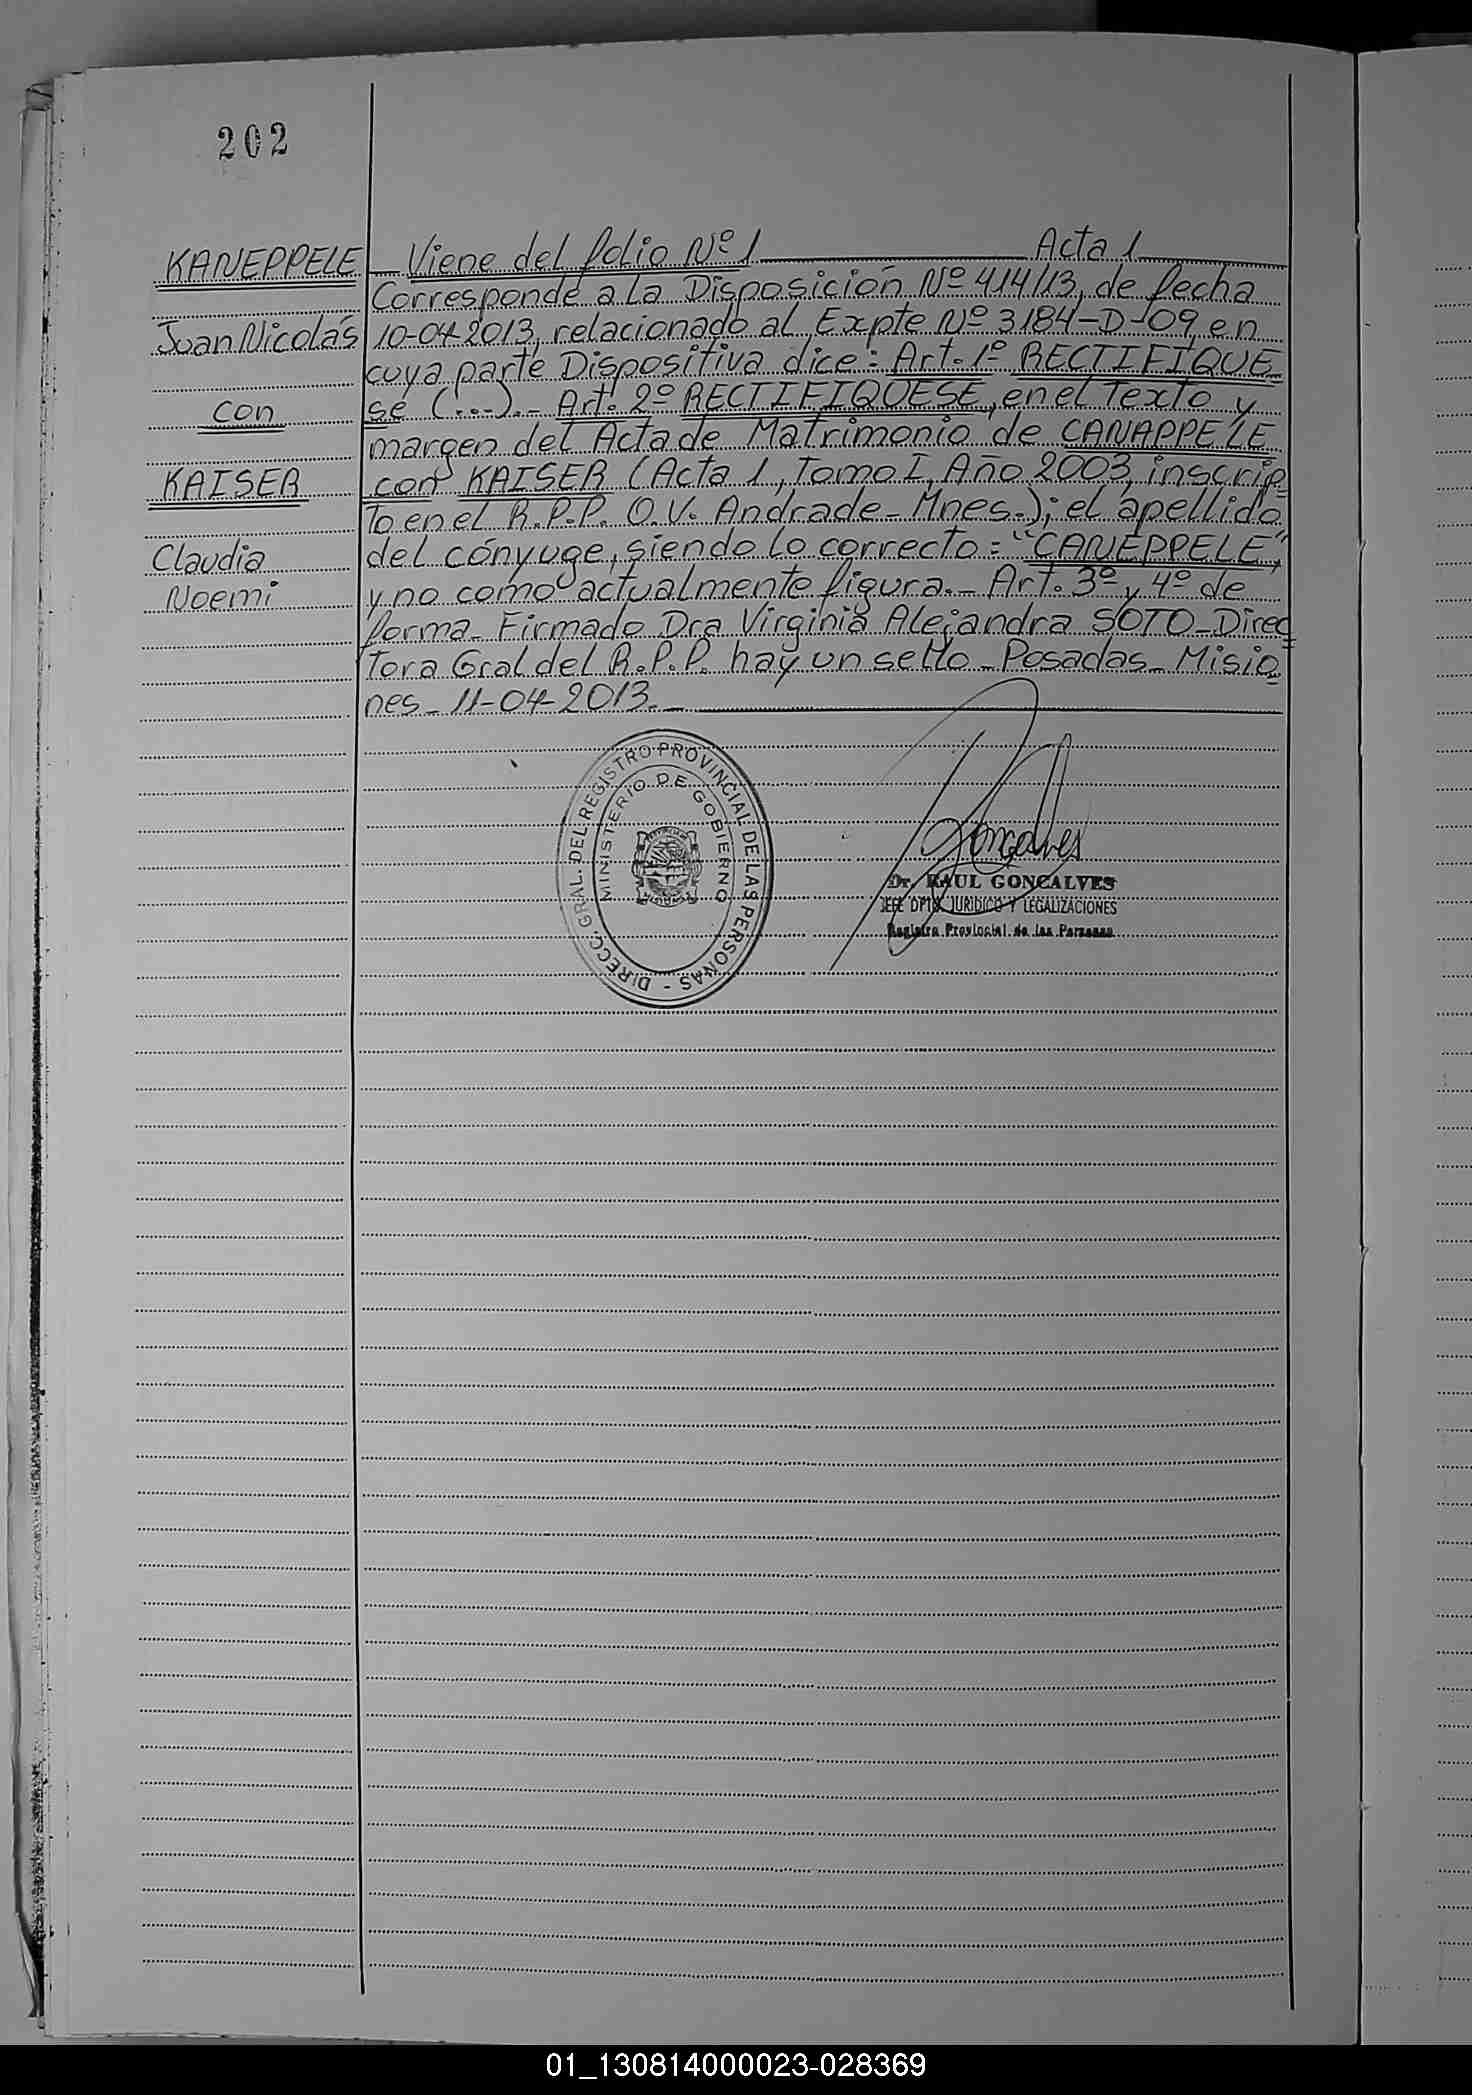 202
KANEPPELE
Juan Nicolás
con
KAISER
Claudia
Noemi
Viene del folio Nº 1 Acta 1
Corresponde a la Disposición Nº 414/13, de fecha
10-04-2013, relacionado al Expte Nº 3184-D-09, en
cuya parte Dispositiva dice: Art. 1º RECTIFIQUE
se (...).- Art. 2º RECTIFIQUESE, en el Texto y
margen del Acta de Matrimonio de CANAPPELE
con KAISER (Acta 1, Tomo I, Año 2003, inscrip-
to en el R.P.P. O.V. Andrade - Mnes.); el apellido
del cónyuge, siendo lo correcto: "CANEPPELE",
y no como actualmente figura.- Art. 3º y 4º de
forma. Firmado Dra Virginia Alejandra SOTO - Direc-
tora Gral del R.P.P. hay un sello - Posadas - Misio-
nes - 11-04-2013.-
DIRECC. GRAL. DEL REGISTRO PROVINCIAL DE LAS PERSONAS -
MINISTERIO DE GOBIERNO
Goncalves
Dr. RAUL GONCALVES
JEFE DPTO. JURIDICO Y LEGALIZACIONES
Registro Provincial de las Personas
01_130814000023-028369